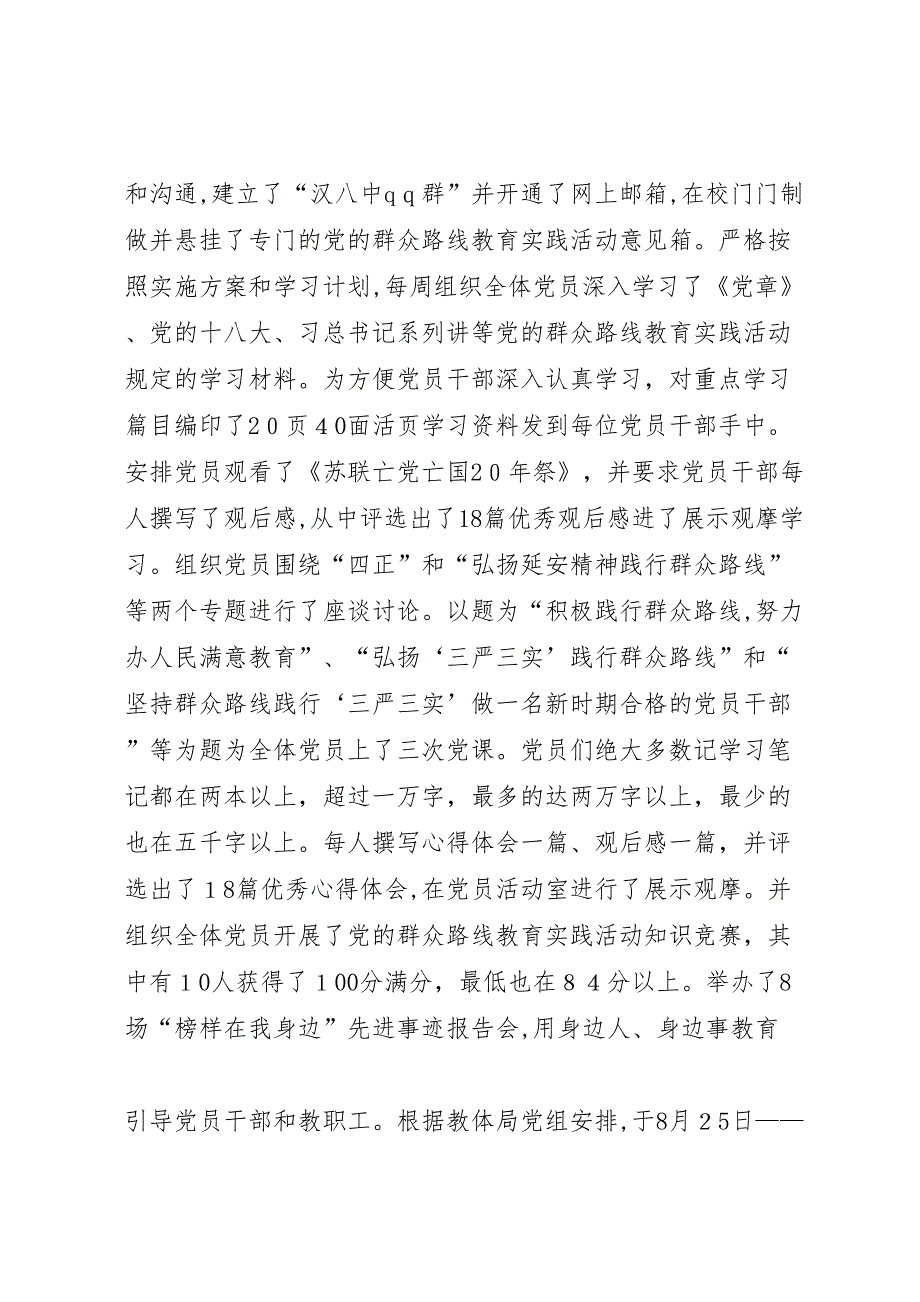 和沟通,建立了“汉八中qq群”并开通了网上邮箱,在校门门制
做并悬挂了专门的党的群众路线教育实践活动意见箱。严格按
照实施方案和学习计划,每周组织全体党员深入学习了《党章》
、党的十八大、习总书记系列讲等党的群众路线教育实践活动
规定的学习材料。为方便党员干部深入认真学习，对重点学习
篇目编印了20页40面活页学习资料发到每位党员干部手中。
安排党员观看了《苏联亡党亡国20年祭》，并要求党员干部每
人撰写了观后感,从中评选出了18篇优秀观后感进了展示观摩学
习。组织党员围绕“四正”和“弘扬延安精神践行群众路线”
等两个专题进行了座谈讨论。以题为“积极践行群众路线,努力
办人民满意教育”、“弘扬‘三严三实’践行群众路线”和“
坚持群众路线践行‘三严三实’做一名新时期合格的党员干部
”等为题为全体党员上了三次党课。党员们绝大多数记学习笔
记都在两本以上，超过一万字，最多的达两万字以上，最少的
也在五千字以上。每人撰写心得体会一篇、观后感一篇，并评
选出了18篇优秀心得体会,在党员活动室进行了展示观摩。并
组织全体党员开展了党的群众路线教育实践活动知识竞赛，其
中有10人获得了100分满分，最低也在84分以上。举办了8
场“榜样在我身边”先进事迹报告会,用身边人、身边事教育
引导党员干部和教职工。根据教体局党组安排,于8月25日——